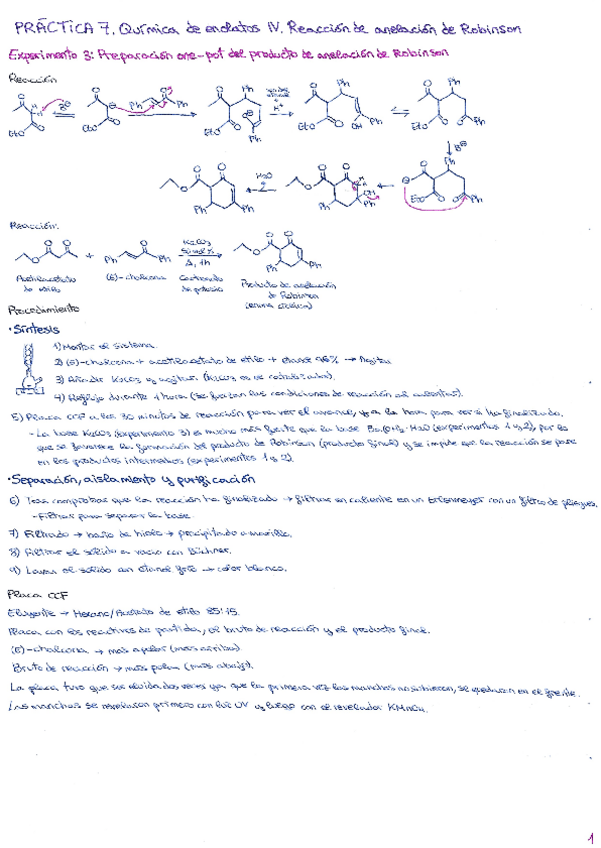 PRÁCTICA 7. Química de enolatos IV. Reacción de anelación de Robinson
Experimento 3: Preparación one-pot del producto de anelación de Robinson
Reacción
EtO EtO Ph Ph EtO Ph Ph EtO Ph OH Ph EtO Ph Ph
H₂O Ph Ph Ph Ph EtO Ph Ph
Reacción:
+ Ph Ph K₂CO₃ Δ, 1h Ph Ph
Acetilacetato de etilo (E)-chalcona Carbonato de potasio Producto de anelación de Robinson
Procedimiento
· Síntesis
1) Montar el sistema.
2) (E)-chalcona + acetilacetato de etilo + etanol 96% → Agitar
3) Añadir K₂CO₃ y agitar
4) Reflujo durante 1 hora (se fuerzan las condiciones de reacción al calentar).
5) Placa CCF a los 30 minutos de reacción para ver el avance, y a la hora para ver si ha finalizado.
- La base K₂CO₃ (experimento 3) es mucho más fuerte que la base (experimentos 1 y 2), por lo
que se favorece la formación del producto de Robinson (producto final) y se impide que la reacción se pare
en los productos intermedios (experimentos 1 y 2)
· Separación, aislamiento y purificación
6) Tras comprobar que la reacción ha finalizado → filtrar en caliente en un erlenmeyer con un filtro de pliegues.
- Filtrar para separar la base
7) Filtrado → baño de hielo → precipitado amarillo.
8) Filtrar el sólido a vacío con Büchner.
9) Lavar el sólido con etanol frío → color blanco.
Placa CCF
Eluyente → Hexano/Acetato de etilo 85:15.
Placa con los reactivos de partida, el bruto de reacción y el producto final.
(E)-chalcona → más apolar (más arriba)
Bruto de reacción → más polar (más abajo).
La placa tuvo que ser eluida dos veces ya que la primera vez las manchas no subieron, se quedaron en el frente.
Las manchas se revelaron primero con luz UV y luego con el revelador KMnO₄.
1